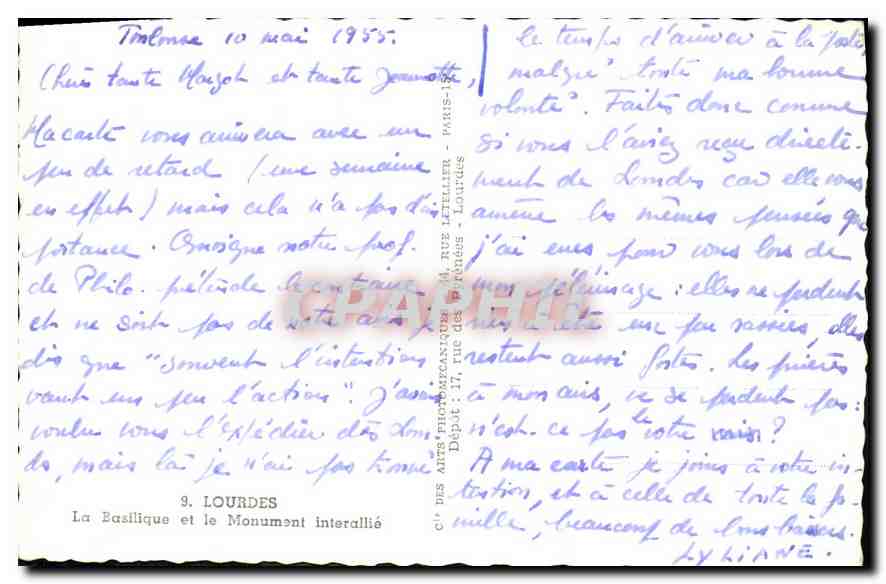 Toulouse 10 mai 1955.
Chères tante Margot et tante Jeannette,
Ma carte vous arrivera avec un
peu de retard (une semaine
en effet) mais cela n'a pas d'im
portance. Quoique notre prof.
de Philo. prétende le contraire
et ne soit pas de votre avis je
dis que "souvent l'intention
vaut un peu l'action". J'avais
voulu vous l'expédier dès Lour
des, mais là je n'ai pas trouvé
le temps d'arriver à la poste,
malgré toute ma bonne
volonté. Faites donc comme
si vous l'aviez reçu directe-
ment de Lourdes car elle vous
amène les mêmes pensées que
j'ai eues pour vous lors de
mon pélérinage : elles ne perdent
rien à être un peu rassies, elles
restent aussi fortes. Les prières
à mon avis, ne se perdent pas :
n'est-ce pas le votre ?
A ma carte je joins à votre in-
tention, et à celle de toute la fa-
mille, beaucoup de bons baisers.
LYLIANE.
9. LOURDES
La Basilique et le Monument interallié
Cie DES ARTS PHOTOMÉCANIQUES, 44, RUE LETELLIER - PARIS-15e
Dépôt : 17, rue des Pyrénées - Lourdes